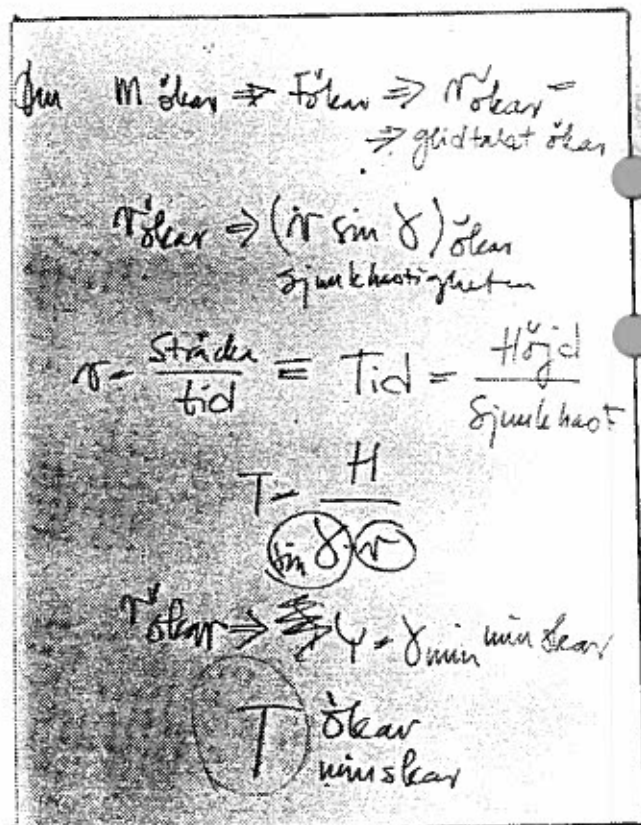 Om m ökar ⇒ F ökar ⇒ v ökar =
⇒ glidtalet ökar
v ökar ⇒ (v sin γ) ökar
sjunkhastigheten
v = sträcka / tid = Tid = Höjd / sjunkhast
T = H / sin γ · v
v ökar ⇒ γ = γmin minskar
T ökar
minskar